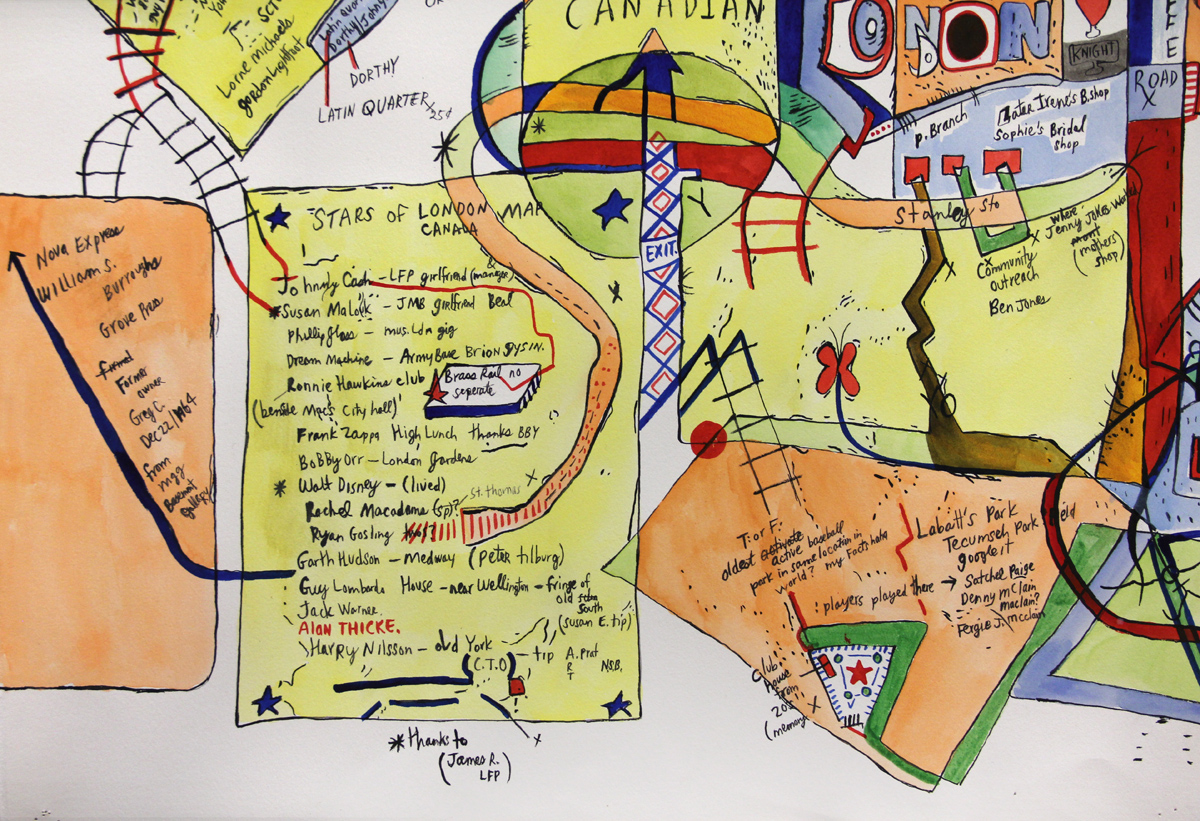 CANADIAN
LONDON
KNIGHT
ROAD
Lorne Michaels
gordon Lightfoot
DORTHY
LATIN QUARTER
25¢
P. Branch
Later Irene's B.shop
Sophie's Bridal
shop
Stanley Sto
where
Jenny Jokes
(mothers
shop)
Community
outreach
Ben Jones
EXIT.
Y
Nova Express
William S.
Burroughs
Grove Press
Former
owner
Greg C.
Dec 22/1964
from
mgg
Basement
gallery
STARS OF LONDON MAP
CANADA
Johnny Cash - LFP girlfriend (manager)
*Susan Malock - JMB girlfriend Beal
Phillip glass - mus. Ldn gig
Dream Machine - Army Base Brion Gysin.
Ronnie Hawkins club
Brass Rail no
seperate
(beside Mac's City hall)
Frank Zappa High Lunch thanks BBY
BoBBy Orr - London gardens
* Walt Disney - (lived)
St. Thomas
Rachel Macadams (sp)?
Ryan Gosling
Garth Hudson - Medway (Peter Tilburg)
Guy Lombardo House - near Wellington - fringe of
old
South
(susan E. tip)
Jack Warner
Alan THICKE.
Harry Nilsson - old York
tip
C.T.O
A. Prat
ART
N.S.B.
*thanks to
(James R.
LFP)
T. or F:
oldest active baseball
park in same location in
world?
Labatt's Park
Tecumseh Park field
google it
players played there → Satchel Paige
Denny McClain
maclain?
Fergie J. mcclain
Club
house
from
(memory)